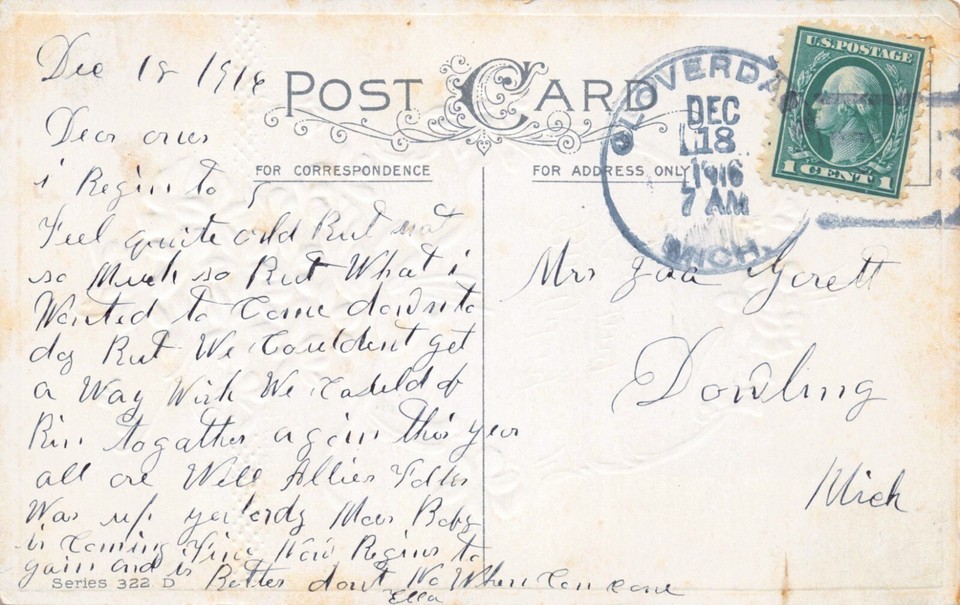 Dec 18 1916
POST CARD
CLOVERDA
DEC
18
1916
7 AM
MICH.
U.S. POSTAGE
1 CENT 1
FOR CORRESPONDENCE
FOR ADDRESS ONLY
Dear ones
i Begin to
Feel quite old But not
so Much so But What i
Wanted to Come down to
day But We Couldent get
a Way Wish We Could of
Bin togather again this year
all are Well Allies Folks
Was up yesterdy Baby
is Coming Fine Now Begins to
gain and is Better dont No When Can Come
Ella
Series 322 D
Mrs Gorett
Dowling
Mich